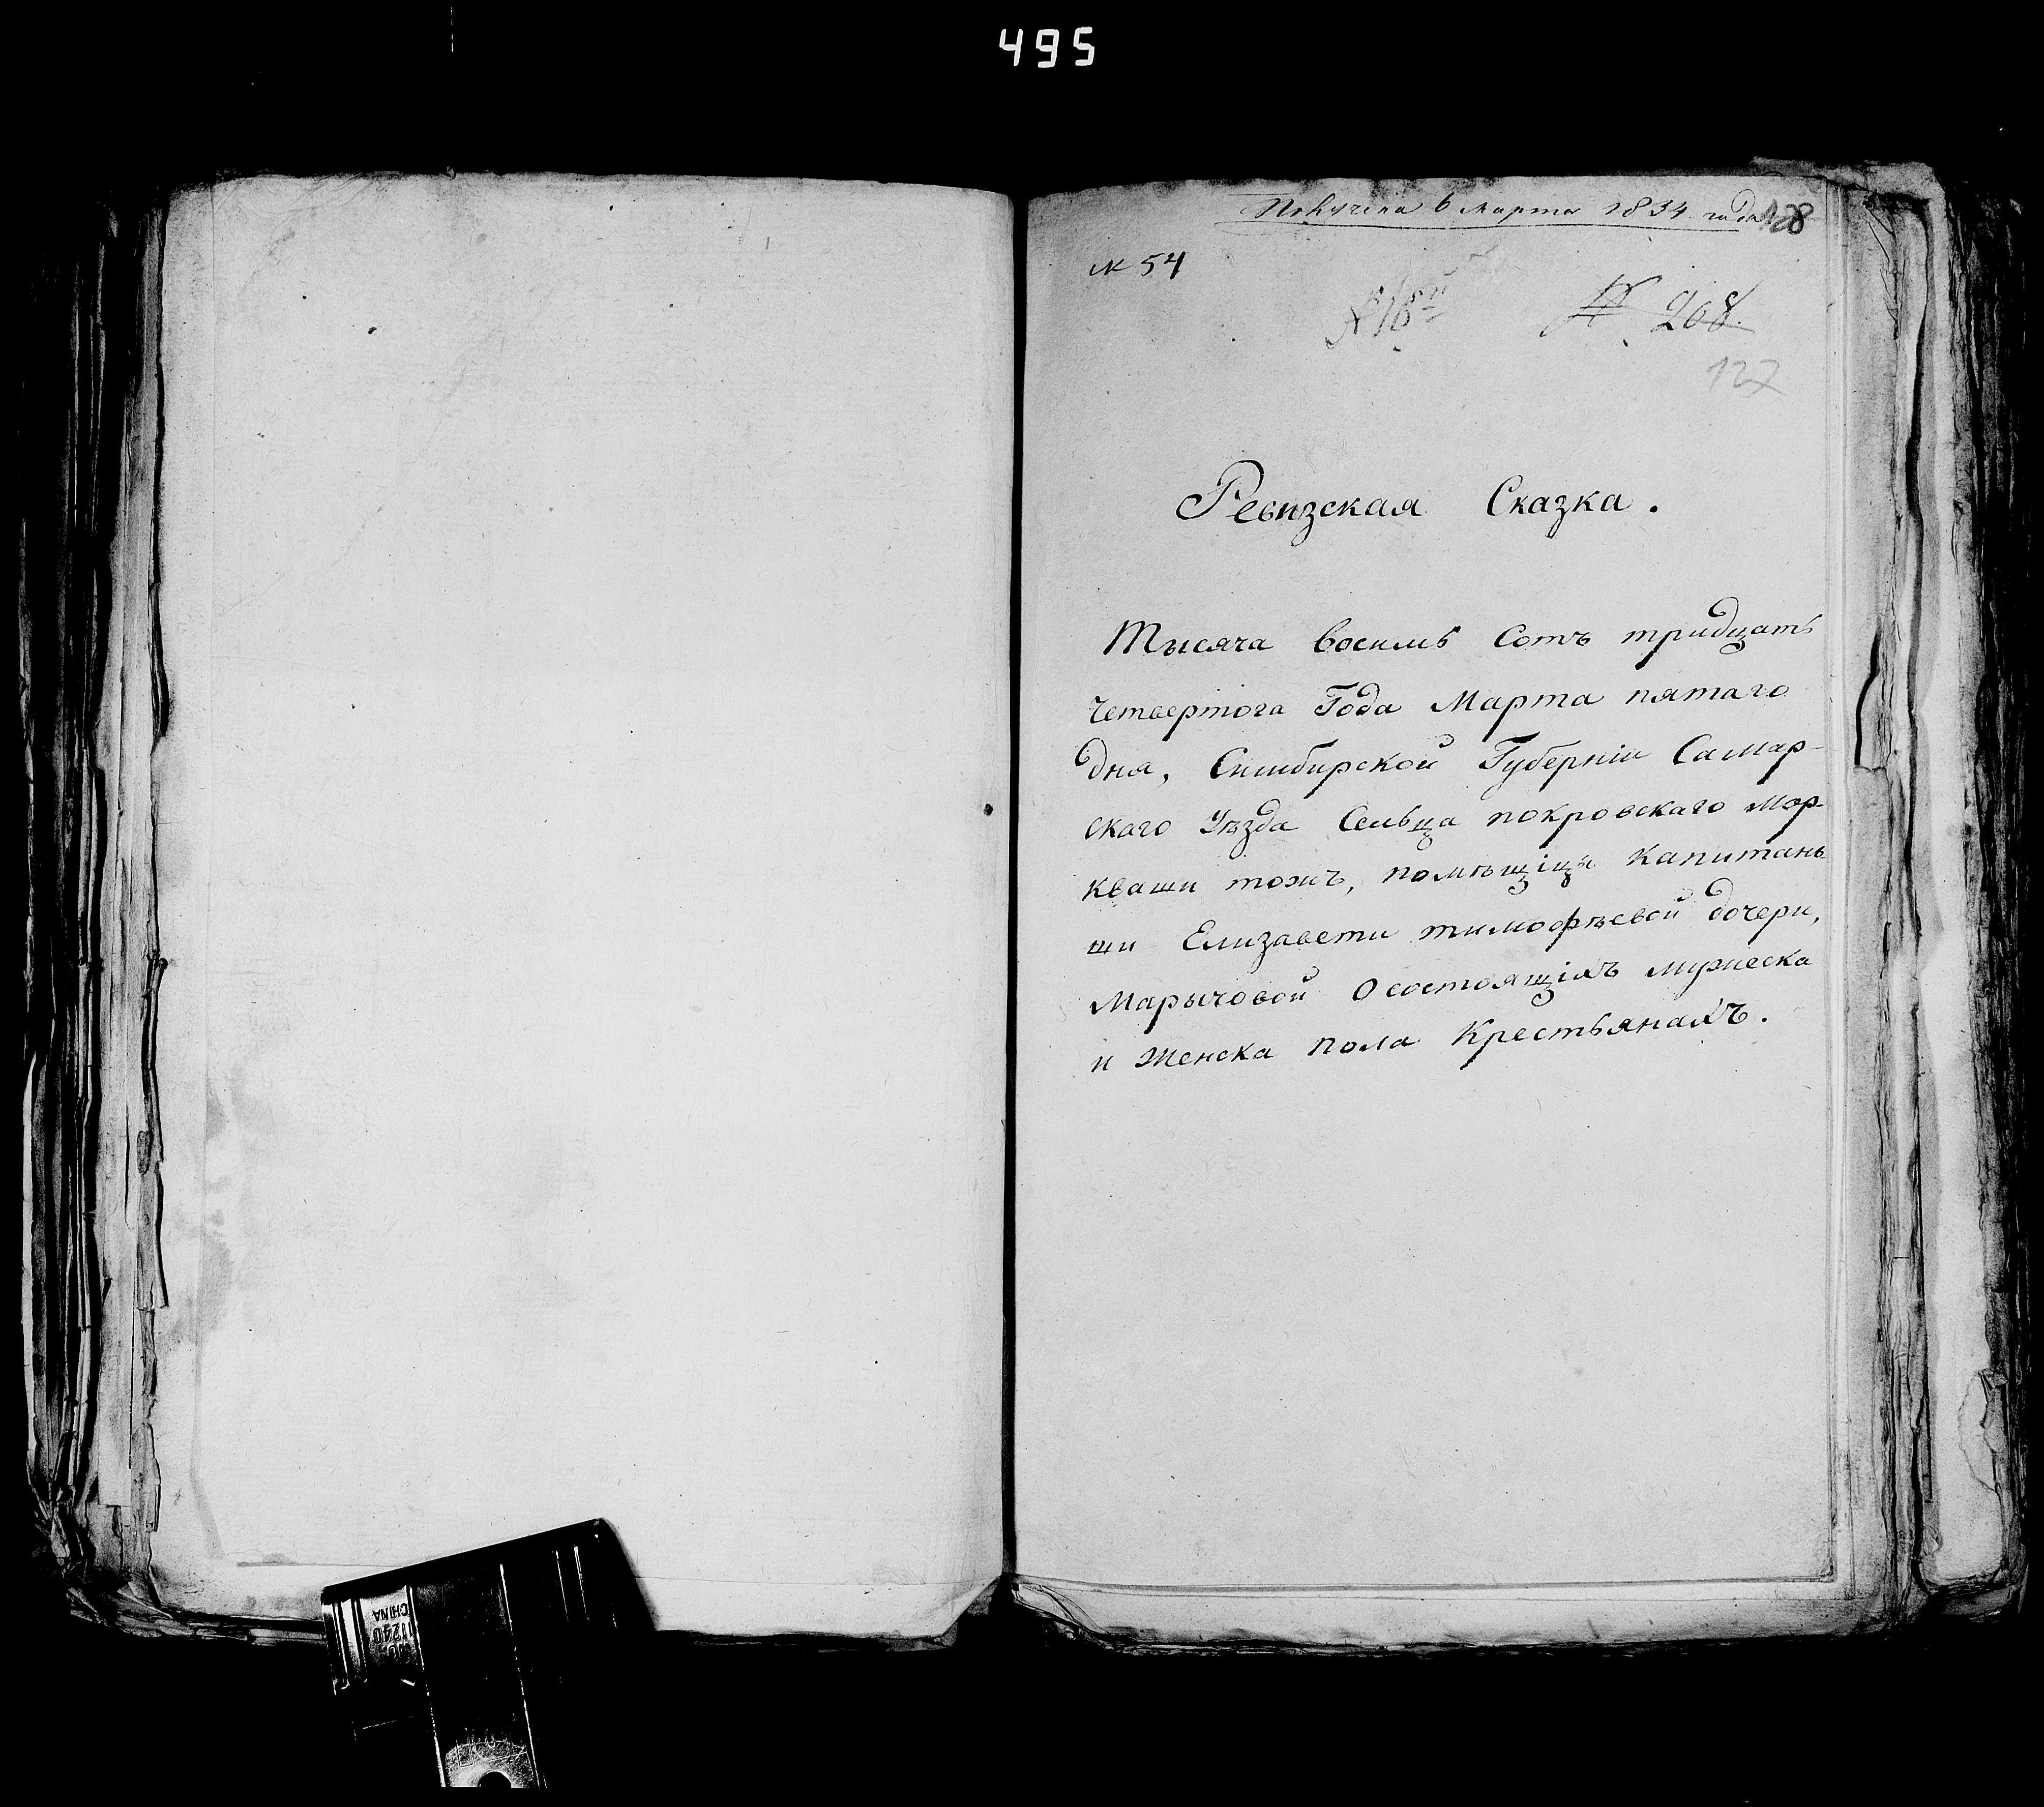 495
Получена 6 марта 1834 года
128
№ 54
№ 208.
127
Ревизская Сказка.
Тысяча восимь Сотъ тридцать
четвертога Года Марта пятаго
дня, Симбирской Губерніи Самар-
скаго Уѣзда Сельца покровскаго Мор-
кваши тожъ, помѣщицы Капитань
ши Елизавети тимофѣевой дочери,
Марычовой О состоящихъ мужеска
и Женска пола Крестьянахъ.
CHINA
11240